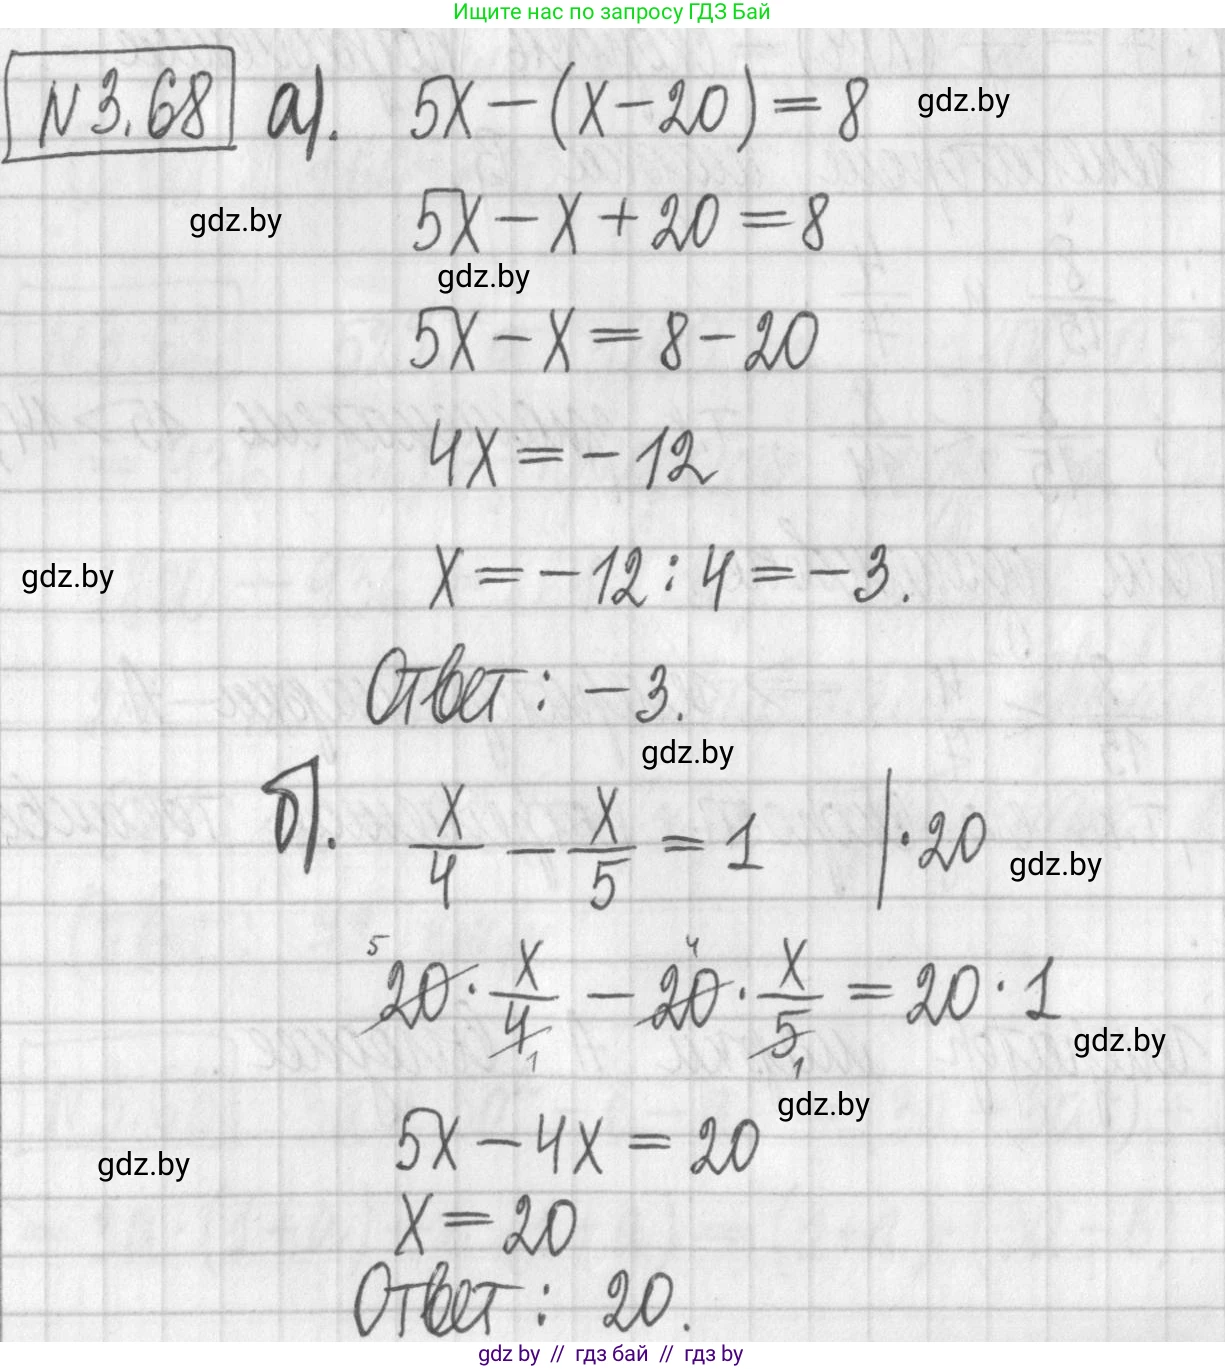 Ищите нас по запросу ГДЗ Бай
N 3.68 а). 5x − (x − 20) = 8 gdz.by
gdz.by 5x − x + 20 = 8
gdz.by
5x − x = 8 − 20
4x = − 12
gdz.by x = − 12 : 4 = − 3.
Ответ : − 3.
gdz.by
б). x/4 − x/5 = 1 | · 20 gdz.by
5 4
20 · x/4 − 20 · x/5 = 20 · 1
1 1 gdz.by
gdz.by
gdz.by 5x − 4x = 20
x = 20
Ответ : 20.
gdz.by // гдз бай // гдз by